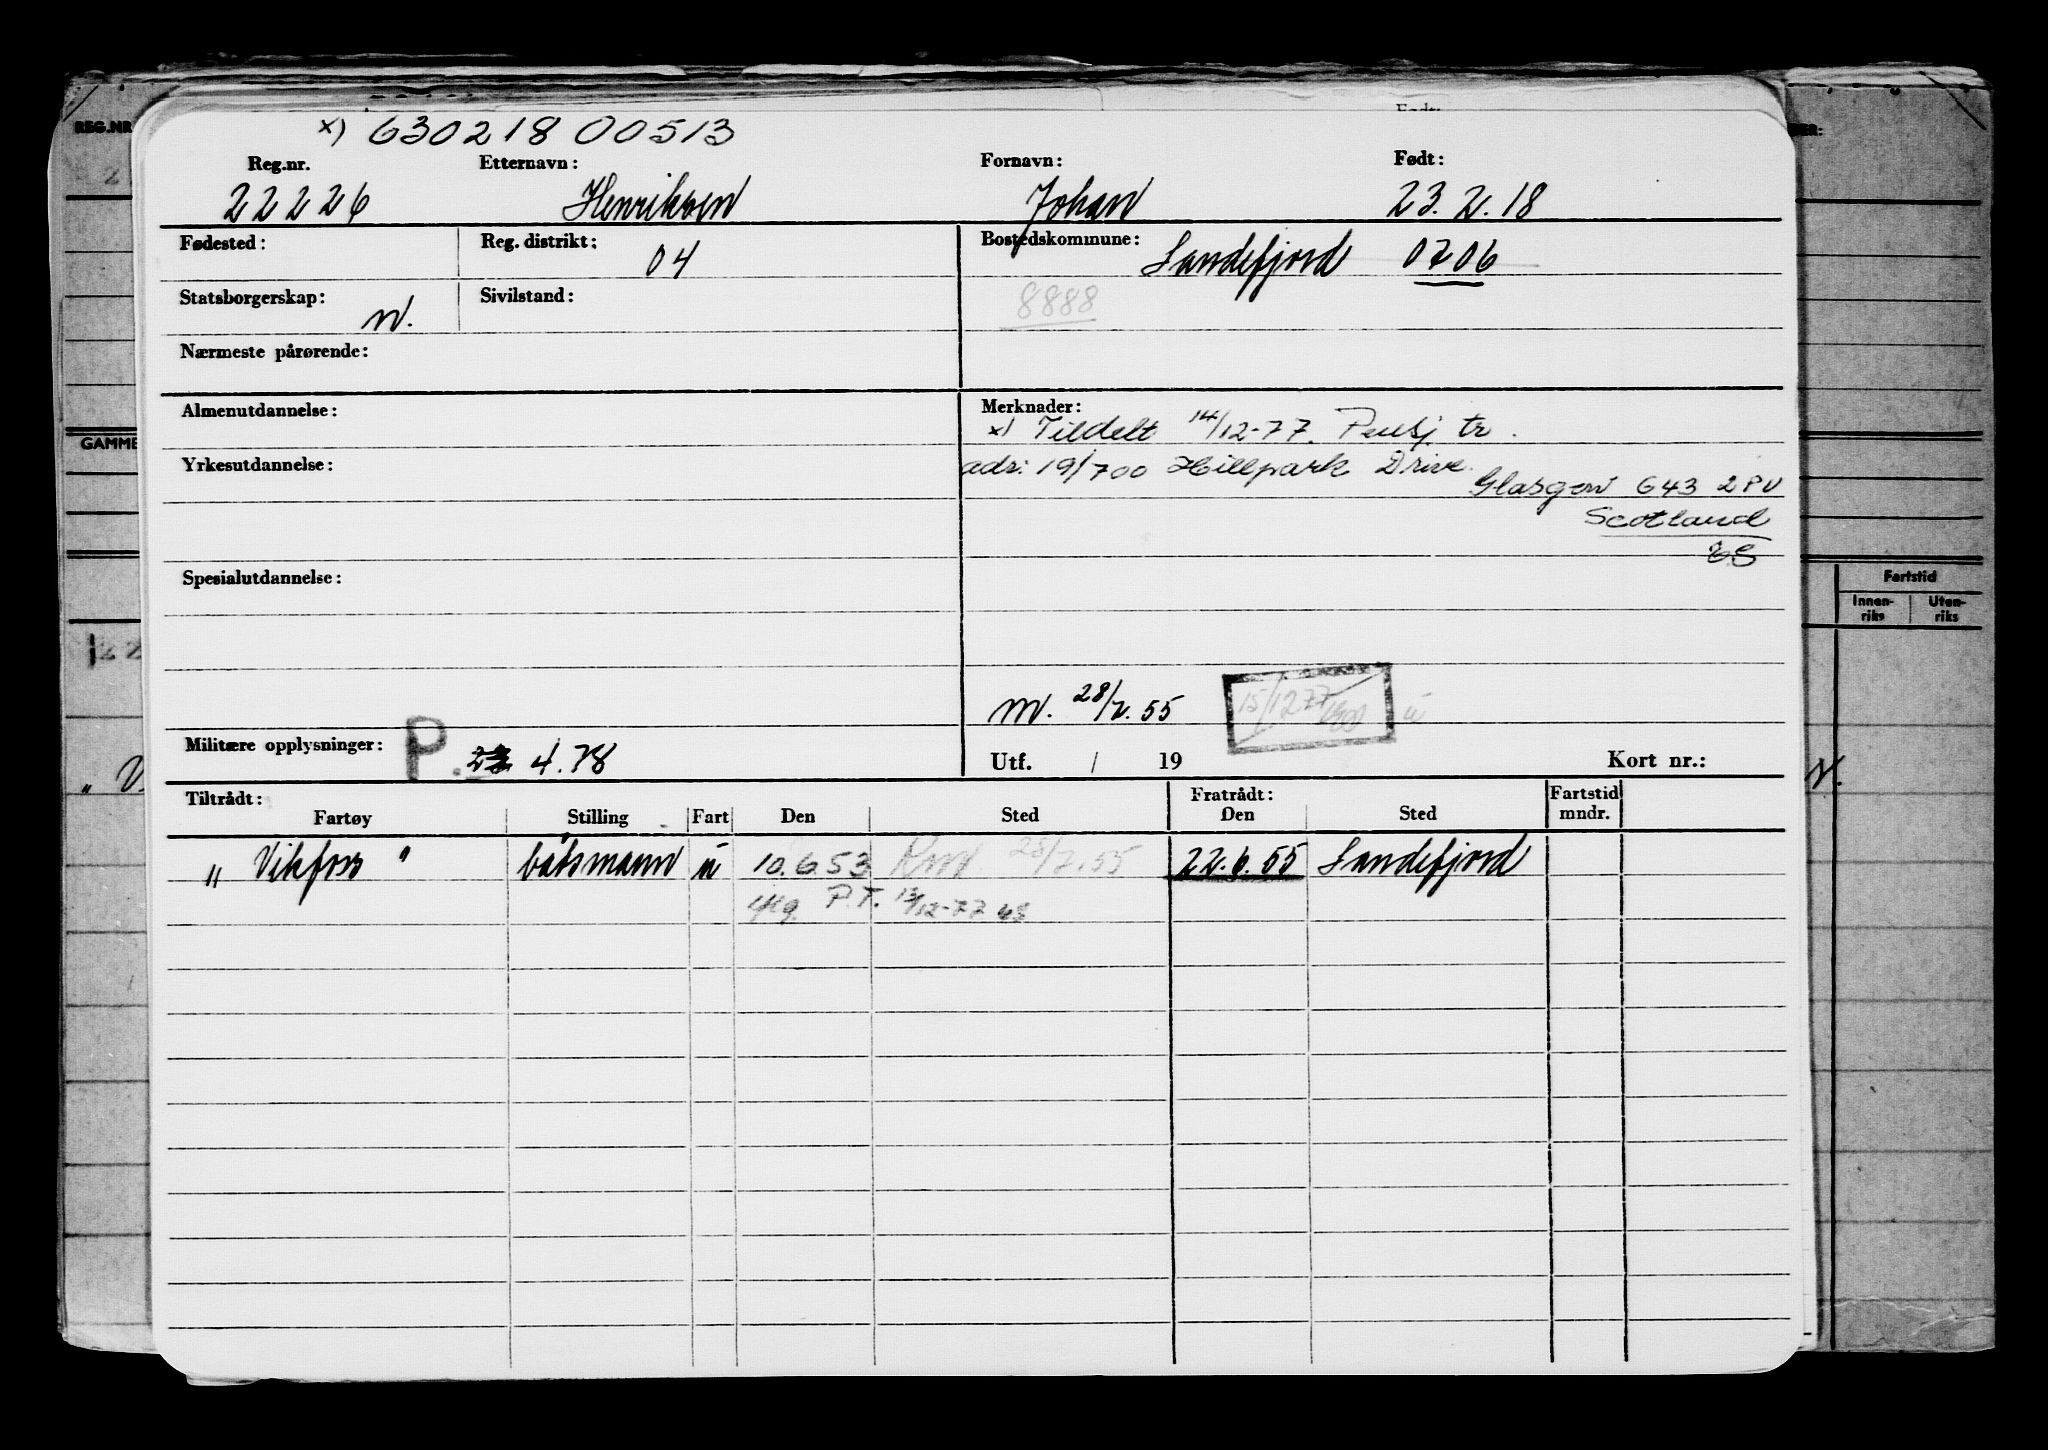 x) 630218 00513
Reg.nr. Etternavn: Fornavn: Født:
22226 Henriksen Johan 23.2.18
Fødested: Reg. distrikt: 04 Bostedskommune: Sandefjord 0706
Statsborgerskap: n. Sivilstand: 8888
Nærmeste pårørende:
Almenutdannelse: Merknader:
x) Tildelt 14/12-77. Pensj. tr.
Yrkesutdannelse: adr: 19/700 Hillpark Drive.
Glasgow G43 2PU
Scotland
Spesialutdannelse:
m. 28/7.55 15/12 77
Militære opplysninger: P. 4.78 Utf. / 19 Kort nr.:
Tiltrådt: Fratrådt: Fartstid
Fartøy Stilling Fart Den Sted Den Sted mndr.
"Vikfoss" båtsmann u 10.6.53 28/7.55 22.6.55 Sandefjord
P.T. 13/12-77
REG.NR
GAMME
Fartstid
Innen-riks Uten-riks